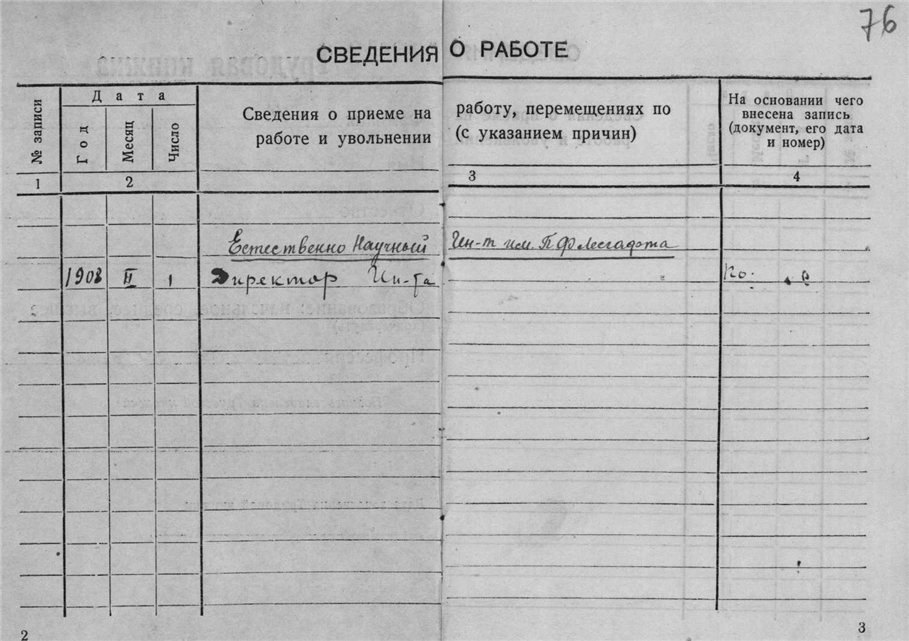 76
СВЕДЕНИЯ О РАБОТЕ
№ записи
Дата
Год
Месяц
Число
Сведения о приеме на работу, перемещениях по
работе и увольнении (с указанием причин)
На основании чего
внесена запись
(документ, его дата
и номер)
1 2 3 4
Естественно Научный Ин-т им. П.Ф Лесгафта
1908 II 1 Директор Ин-та
2 3